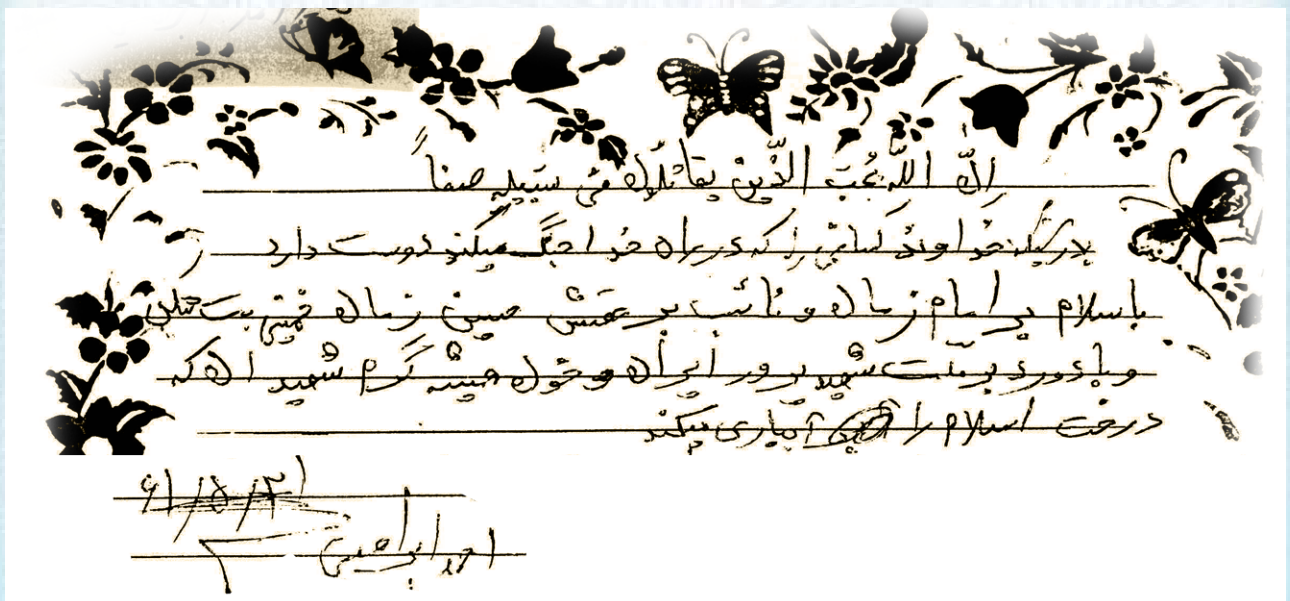 اِنَّ اللهَ یُحِبُّ الَّذینَ یقاتلون فی سَبیلِهِ صفاً
بدرستیکه خداوند کسانی را که در راه خدا جنگ میکنند دوست دارد
باسلام بر امام زمان و نائب بر حقش حسین زمان خمینی بت شکن
و با درود بر ملت شهید پرور ایران و خون همیشه گرم شهیدان که
درخت اسلام را آبیاری میکند
۶۱/۵/۳۱
احمد ابراهیمی